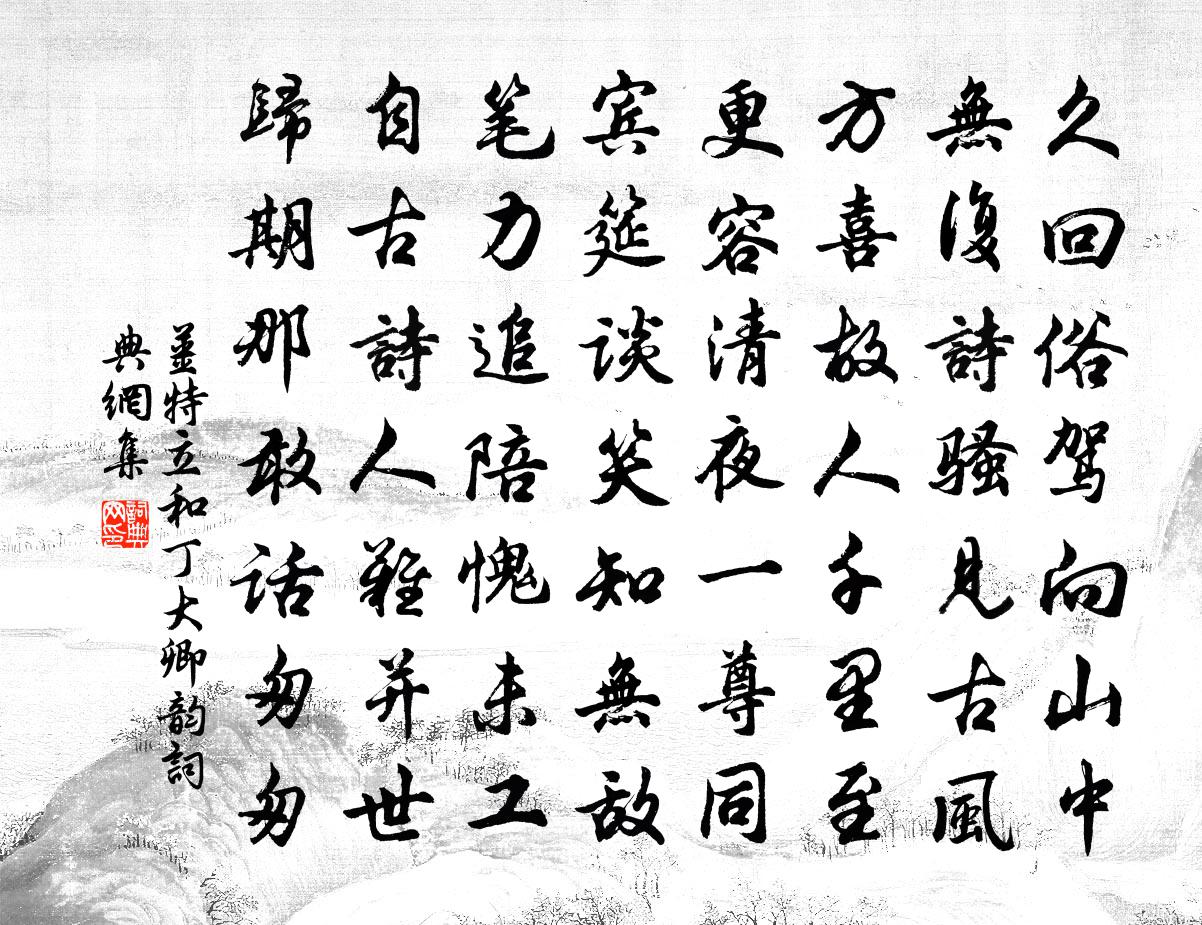 久回俗驾向山中
無復詩骚見古風
方喜故人千里至
更容清夜一尊同
宾筵谈笑知無敌
笔力追陪愧未工
自古詩人難并世
歸期那敢话匆匆
姜特立和丁大卿韵詞
典網集
詞典网印